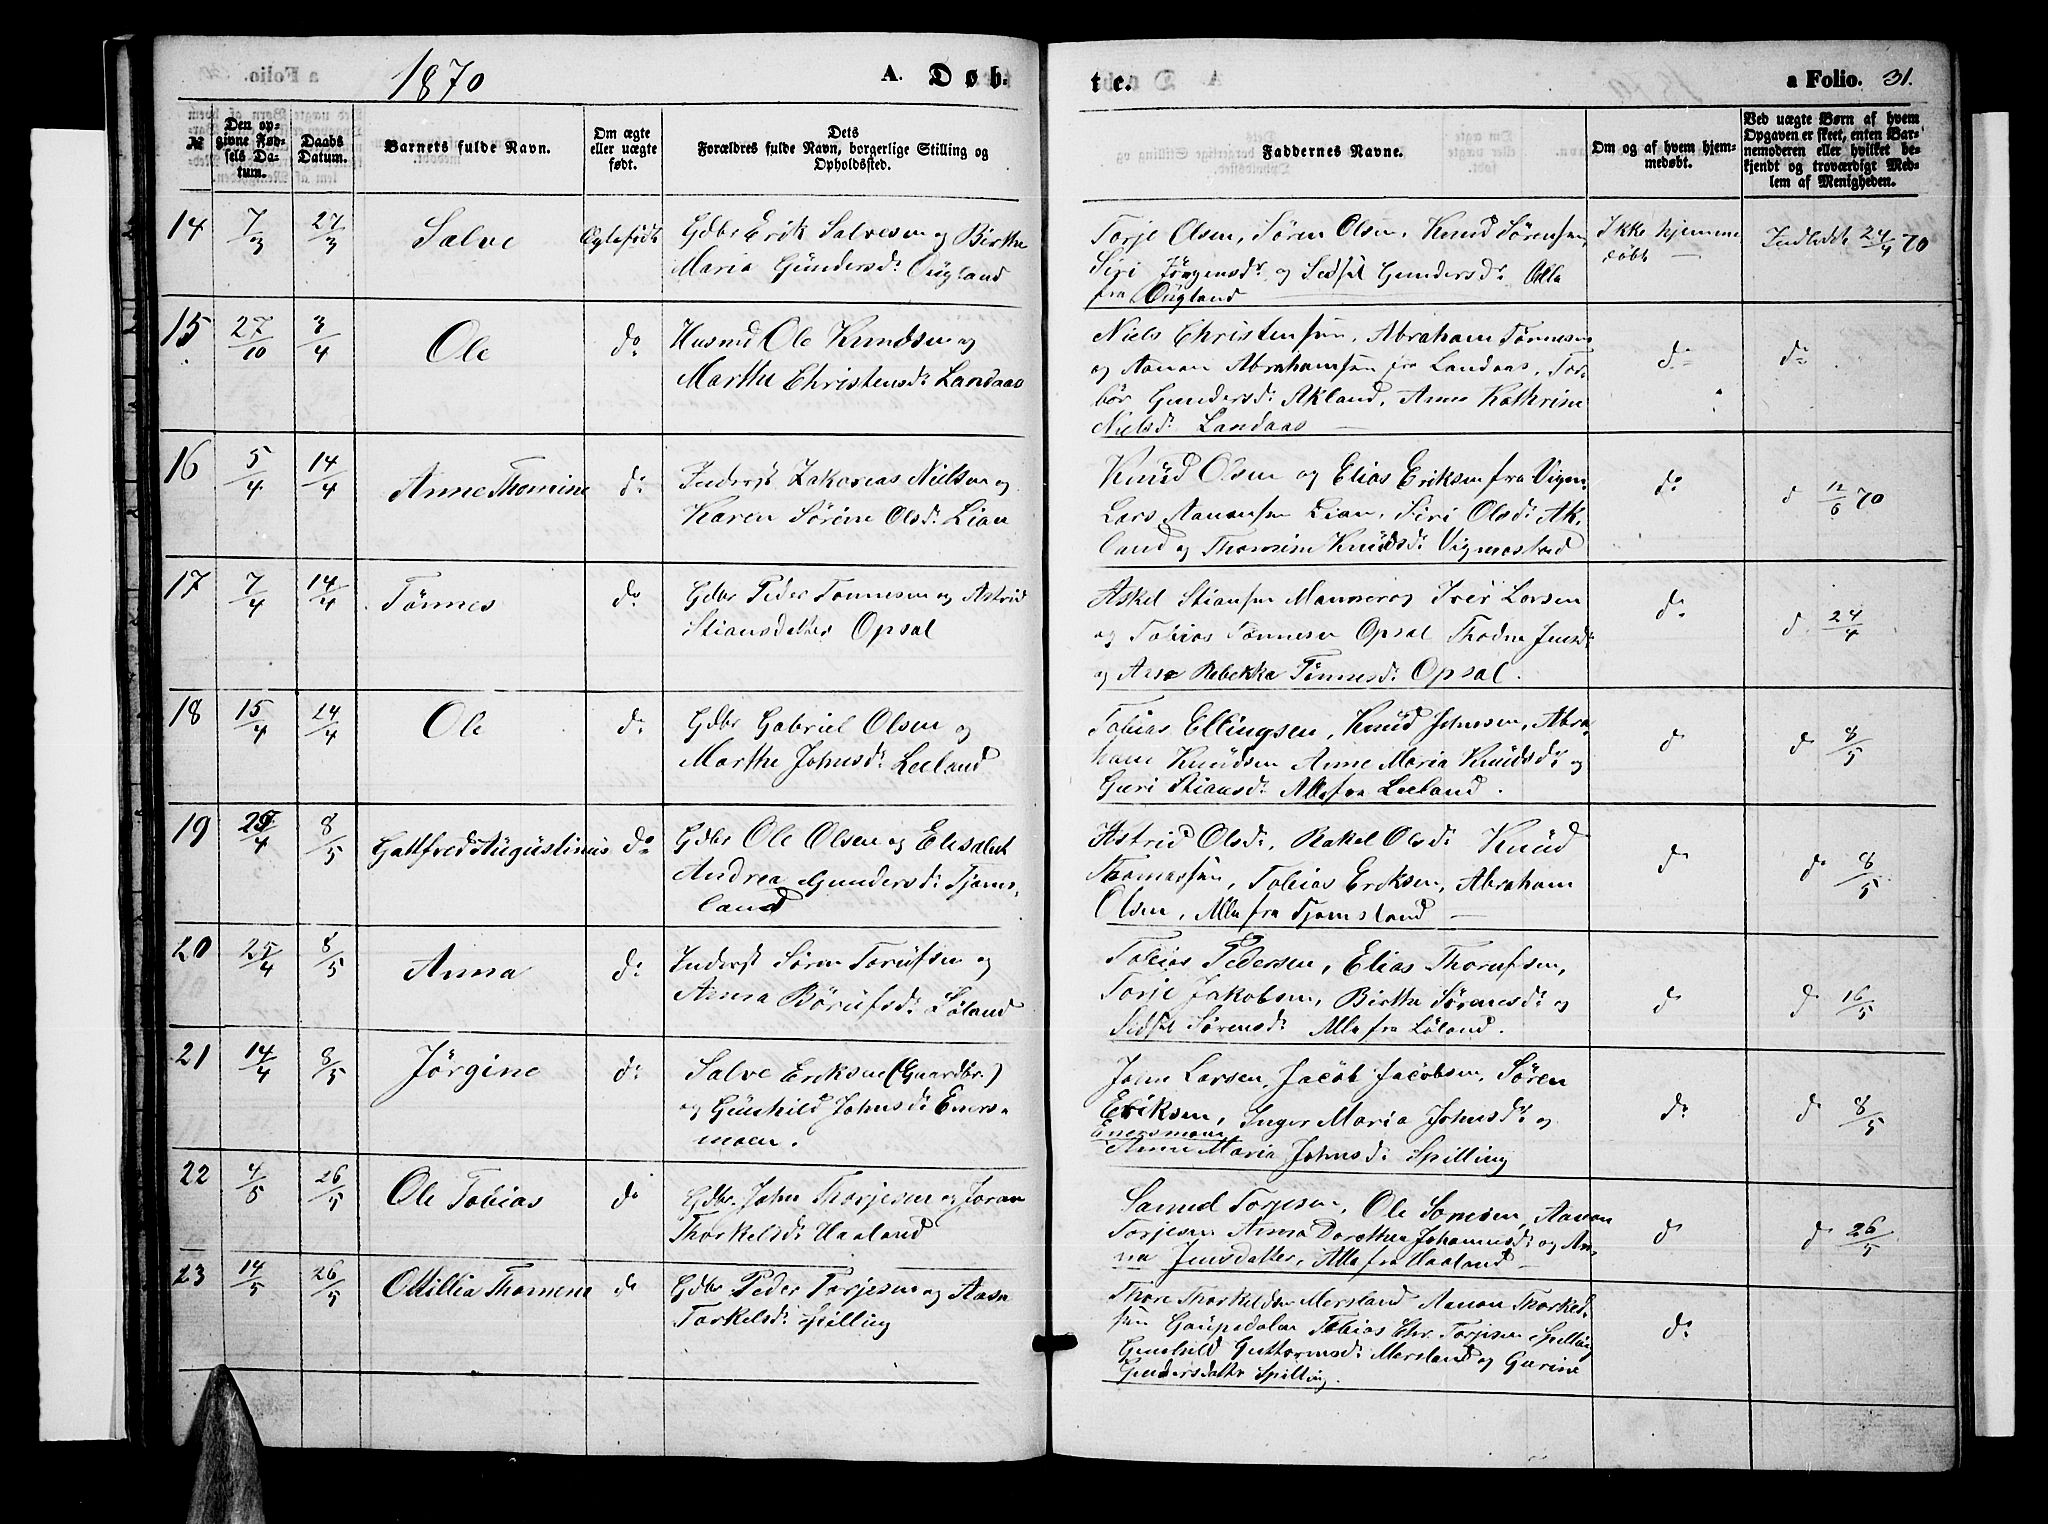 1870
A. Døb-
te.
a Folio. 31.
№
Den op-
givne Fød-
sels Da-
tum.
Daabs
Datum.
Barnets fulde Navn.
Om ægte
eller uægte
født.
Dets
Forældres fulde Navn, borgerlige Stilling og
Opholdssted.
Faddernes Navne.
Om og af hvem hjem-
medøbt.
Ved uægte Børn af hvem
Opgaven er skeet, enten Bar-
nemoderen eller hvilket be-
kjendt og troværdigt Med-
lem af Menigheden.
14 7/3 27/3 Salve Ægtefødt Gdbr Erik Salvesen og Birthe
Maria Gundersd: Ougland
Torje Olsen, Sören Olsen, Knud Sörensen,
Siri Jörgensdr og Sidsel Gundersd: Alle
fra Ougland
Ikke hjemme
döbt
Indledt 24/4 70
15 27/10 3/4 Ole do Husmd Ole Knudsen og
Marthe Christensd: Landaas
Niels Christensen, Abraham Tönnesen
og Aanon Abrahamsen fra Landaas, Tor-
bör Gundersd: Akland, Anne Kathrine
Nielsd: Landaas
do do
16 5/4 14/4 Anne Thomine do Inderst Zakarias Nielsen og
Karen Sörine Olsd: Lian
Knud Olsen og Elias Eriksen fra Vigm:
Lars Aanensen Lian, Siri Olsd: Ak-
land og Thomine Knudsd: Vigmostad
do d 12/6 70
17 7/4 14/4 Tönnes do Gdbr Peder Tönnesen og Astrid
Stiansdatter Opsal
Askel Stiansen Mannerog Iver Larsen
og Tobias Tönnesen Opsal Thodne Jensd:
og Ane Rebekka Tönnesd: Opsal.
do d. 24/4
18 15/4 24/4 Ole do Gdbr Gabriel Olsen og
Marthe Johnsd: Leeland
Tobias Ellingsen, Knud Johnsen, Abra-
ham Knudsen Anne Maria Knudsd: og
Guri Stiansd: Alle fra Leeland.
d d 8/5
19 /4 8/5 Gattfred Augustinus do Gdbr Ole Olsen og Elisabet
Andrea Gundersd: Tjoms-
land
Astrid Olsd:, Rakel Olsd: Knud
Thomassen, Tobias Eriksen, Abraham
Olsen, Alle fra Tjomsland
d d 8/5
20 25/4 8/5 Anna do Inderst Sören Torufsen og
Anna Börufsd: Löland
Tobias Pedersen, Elias Thorufsen,
Torje Jakobsen, Birthe Sörensd: og
Sidsel Sörensd: Alle fra Löland.
d d 16/5
21 14/4 8/5 Jörgine do Salve Eriksen (Gaardbr.)
og Gunhild Johnsd: Eners-
moen.
John Larsen, Jacob Jacobsen, Sören
Eriksen, Inger Maria Johnsd: og
Enersmoen
Anne Maria Johnsd: Spilling
do d 8/5
22 4/5 26/5 Ole Tobias do Gdbr. John Thorjesen og Joran
Thorkelsd: Haaland
Samuel Torjesen, Ole Tomsen, Aanon
Torjesen Anna Dorothea Johannesd: og An-
na Jensdatter, Alle fra Haaland
d d 26/5
23 14/5 26/5 Ottillia Thomine do Gdbr Peder Torjesen og Aase
Torkelsd: Spilling
Thore Thorkeldsen Mersland Aanon Thorkeld-
sen Gaupedalen Tobias Chr. Torjesen Spilling
Gunhild Guttormsd: Mersland og Gurine
Gundersdatter Spilling.
do